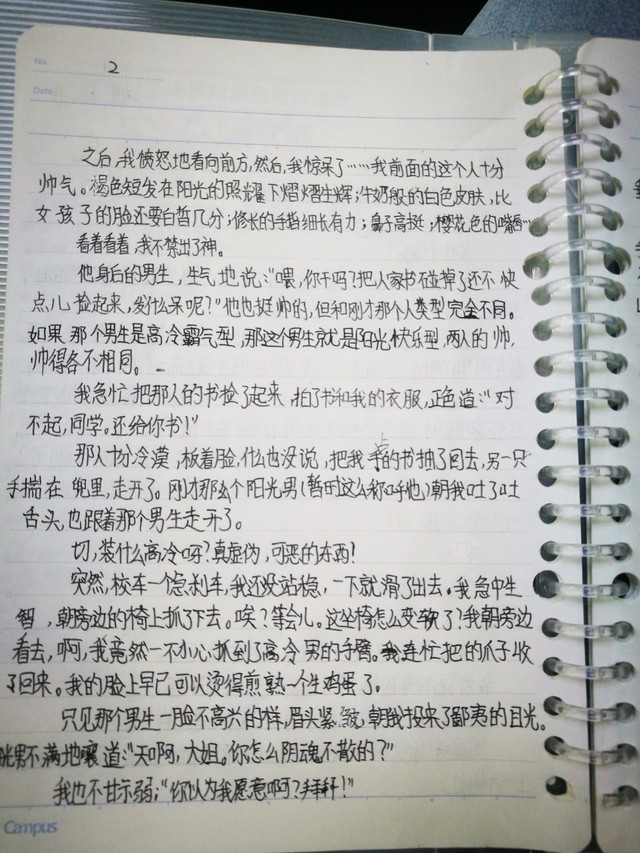 No.
2
Date
之后,我愤怒地看向前方,然后,我惊呆了……我前面的这个人十分
帅气。褐色短发在阳光的照耀下熠熠生辉;牛奶般的白色皮肤,比
女孩子的脸还要白皙几分;修长的手指细长有力;鼻子高挺;樱花色的嘴唇……
看着看着,我不禁出了神。
他身后的男生,生气地说:“喂,你干吗?把人家书碰掉了还不快
点儿捡起来,发什么呆呢?”他也挺帅的,但和刚才那个人类型完全不同。
如果那个男生是高冷霸气型,那这个男生就是阳光快乐型,两人的帅,
帅得各不相同。
我急忙把那人的书捡了起来,拍了书和我的衣服,正色道:“对
不起,同学。还给你书!”
那人十分冷漠,板着脸,什么也没说,把我手上的书抽了回去,另一只
手揣在兜里,走开了。刚才那么个阳光男(暂时这么称呼他)朝我吐了吐
舌头,也跟着那个男生走开了。
切,装什么高冷呀?真虚伪,可恶的东西!
突然,校车一个急刹车,我还没站稳,一下就滑了出去。我急中生
智,朝旁边的椅上抓了下去。唉?等会儿。这坐椅怎么变软了?我朝旁边
看去,啊,我竟然一不小心抓到了高冷男的手臂。我连忙把的爪子收
了回来。我的脸上早已可以烫得煎熟一个生鸡蛋了。
只见那个男生一脸不高兴的样,眉头紧皱,朝我投来了鄙夷的目光。
光男不满地嚷道:“天啊,大姐。你怎么阴魂不散的?”
我也不甘示弱:“你以为我愿意啊?拜拜!”
Campus